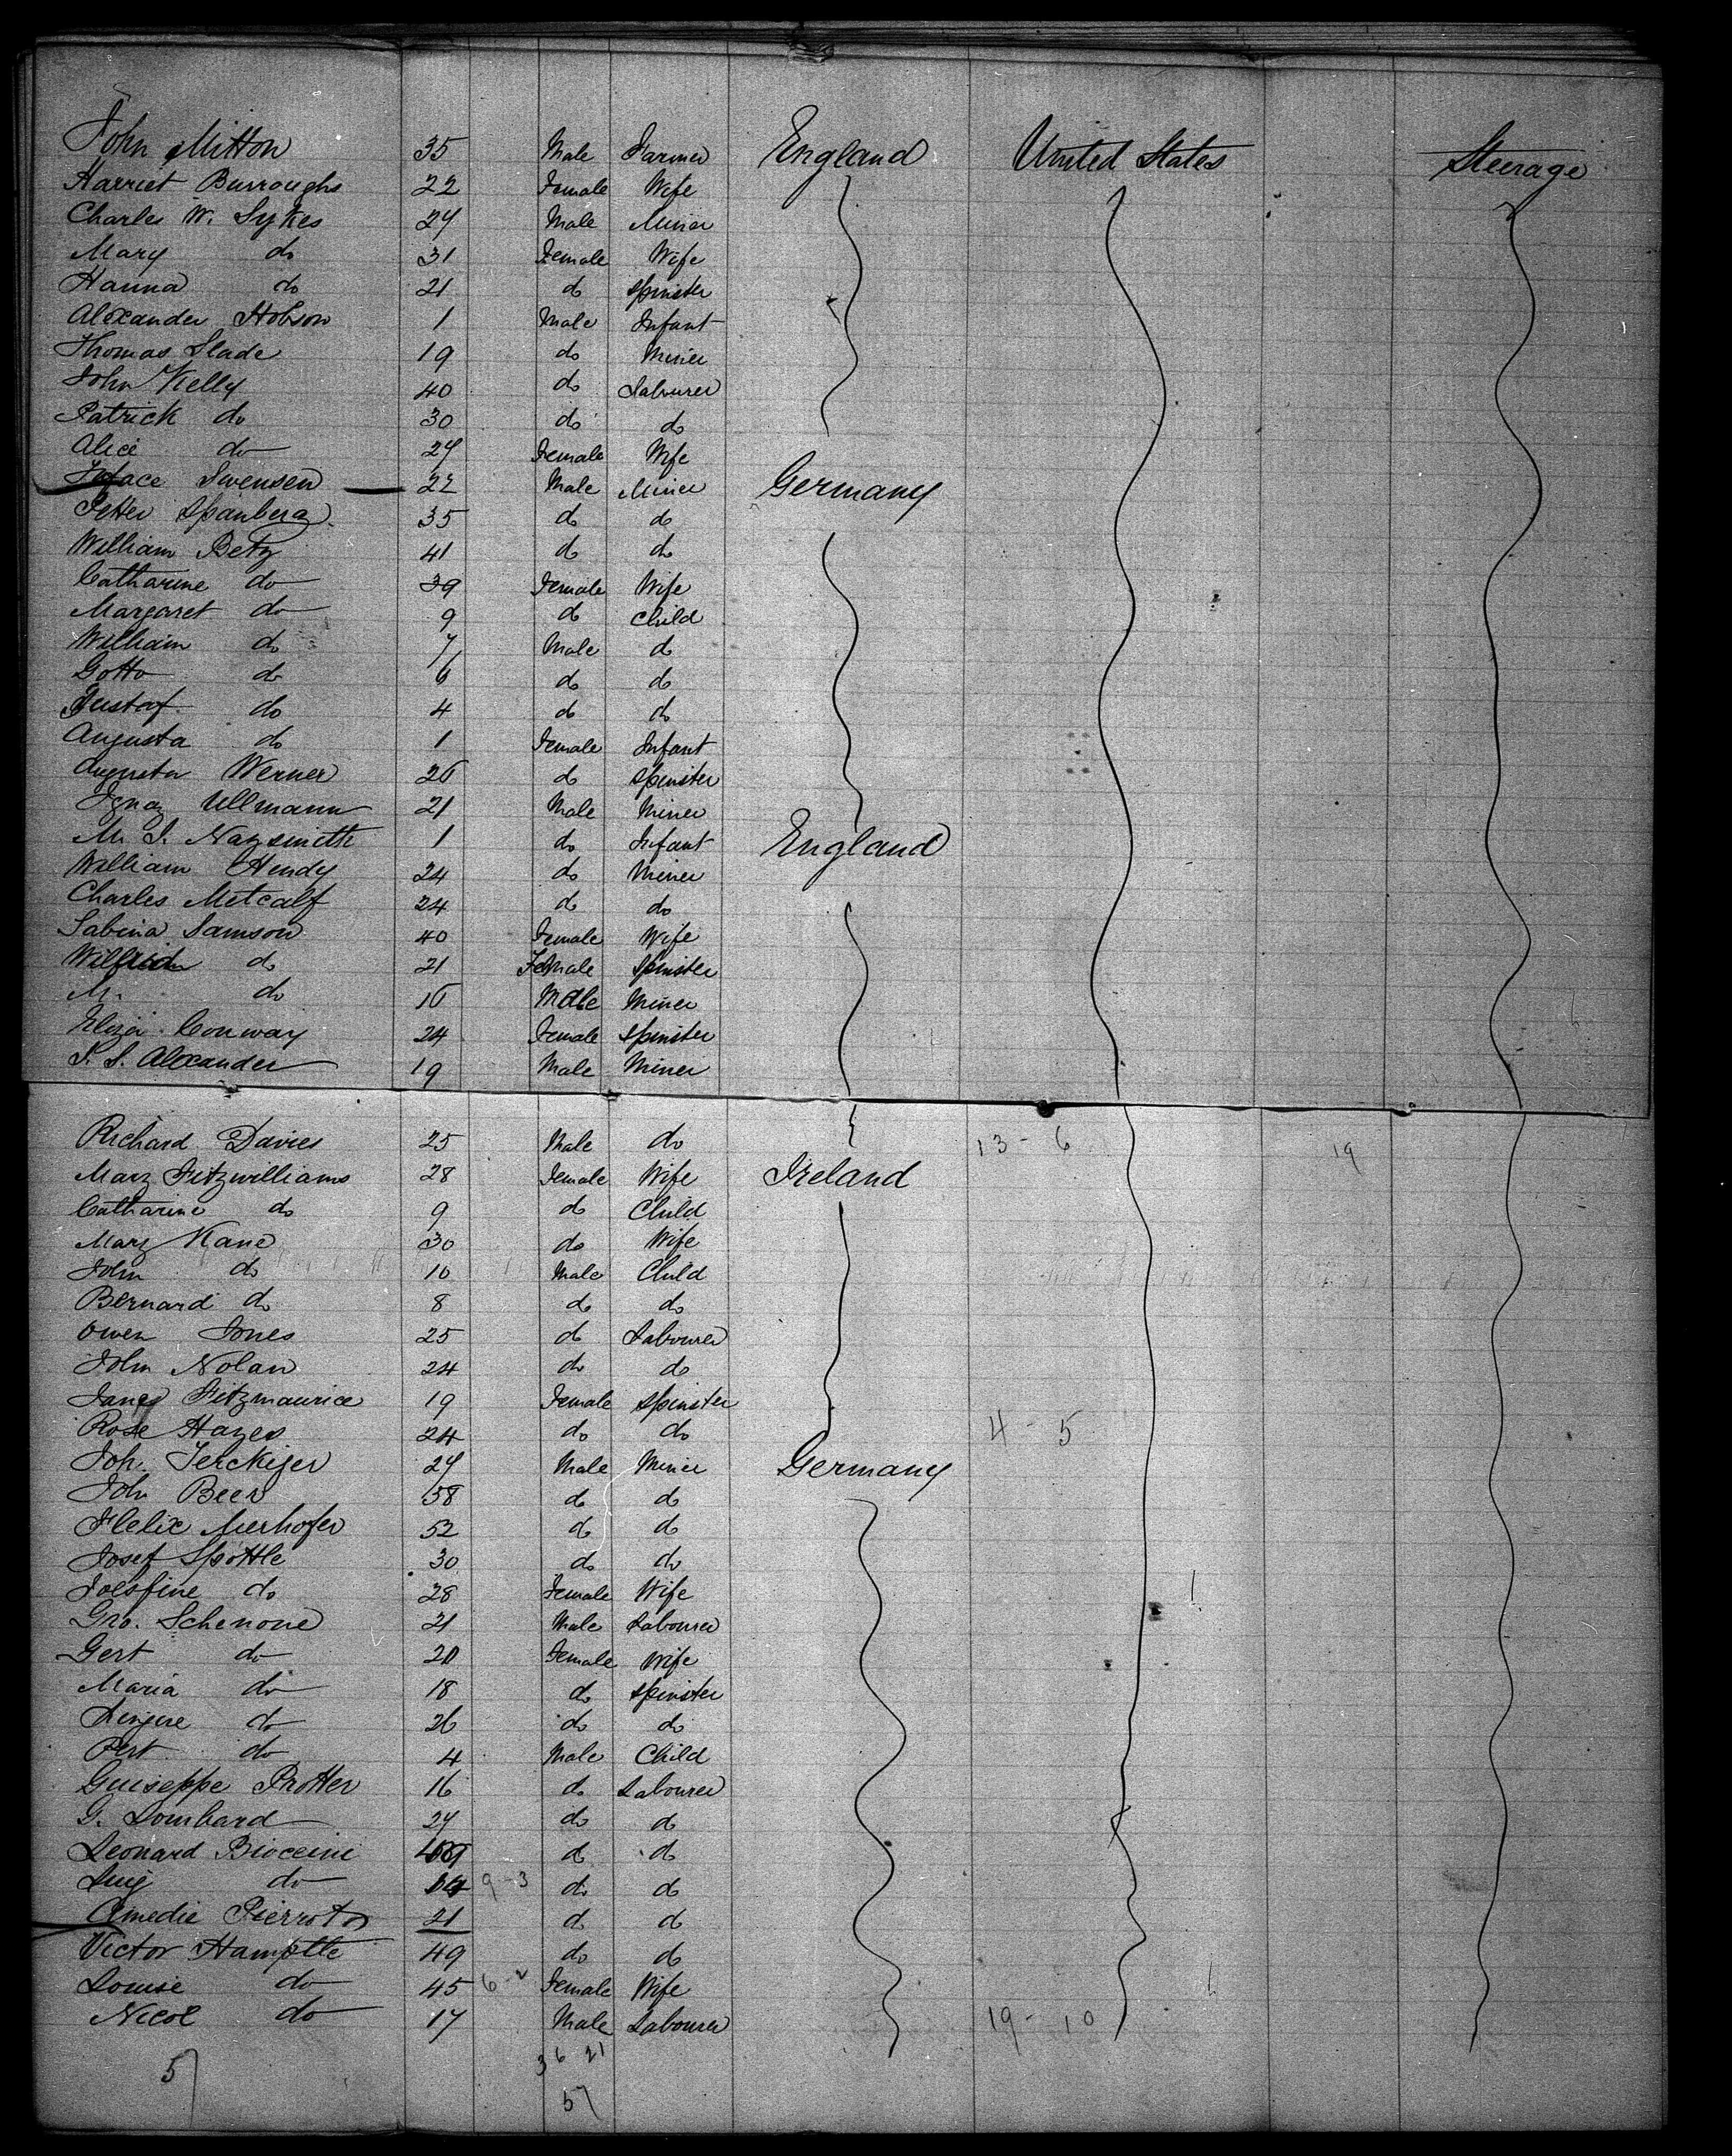 John Mitton 35 Male Farmer England United States Steerage
Harriet Burroughs 22 Female Wife
Charles W. Sykes 24 Male Miner
Mary do 31 Female Wife
Hanna do 21 do Spinster
Alexander Hobson 1 Male Infant
Thomas Slade 19 do Miner
John Kelly 40 do Labourer
Patrick do 30 do do
Alice do 27 Female Wife
Swensen 22 Male Miner Germany
Petter Spanberg 35 do do
William Betz 41 do do
Catharine do 39 Female Wife
Margaret do 9 do Child
William do 7 Male do
Gotto do 6 do do
Gustaf do 4 do do
Augusta do 1 Female Infant
Augusta Werner 26 do Spinster
Ignaz Ullmann 21 Male Miner
M. J. Naysmith 1 do Infant England
William Hendy 24 do Miner
Charles Metcalf 24 do do
Sabina Samson 40 Female Wife
do 21 Female Spinster
M. do 16 Male Miner
Eliza Conway 24 Female Spinster
Alexander 19 Male Miner
Richard Davies 25 Male do 13 - 6 19
Mary Fitzwilliams 28 Female Wife Ireland
Catharine do 9 do Child
Mary Kane 30 do Wife
John do 10 Male Child
Bernard do 8 do do
Owen Jones 25 do Labourer
John Nolan 24 do do
Fitzmaurice 19 Female Spinster
Rose Hayes 24 do do 4 - 5
Joh. 27 Male Miner Germany
Joh Beer 58 do do
Merhofer 52 do do
Josef Spottle 30 do do
Joesfine do 28 Female Wife
Gro. Schenone 21 Male Labourer
Gert do 20 Female Wife
Maria do 18 do Spinster
do 26 do do
Pert do 4 Male Child
Guiseppe Protter 16 do Labourer
G. Lombard 27 do do
Leonard Bioccini do do
Luig do 9 - 3 do do
Amedie Pierrot 21 do do
Victor Hamptte 49 do do
Louise do 45 6 - 2 Female Wife
Nicol do 17 Male Labourer 19 - 10
36 21
57 57